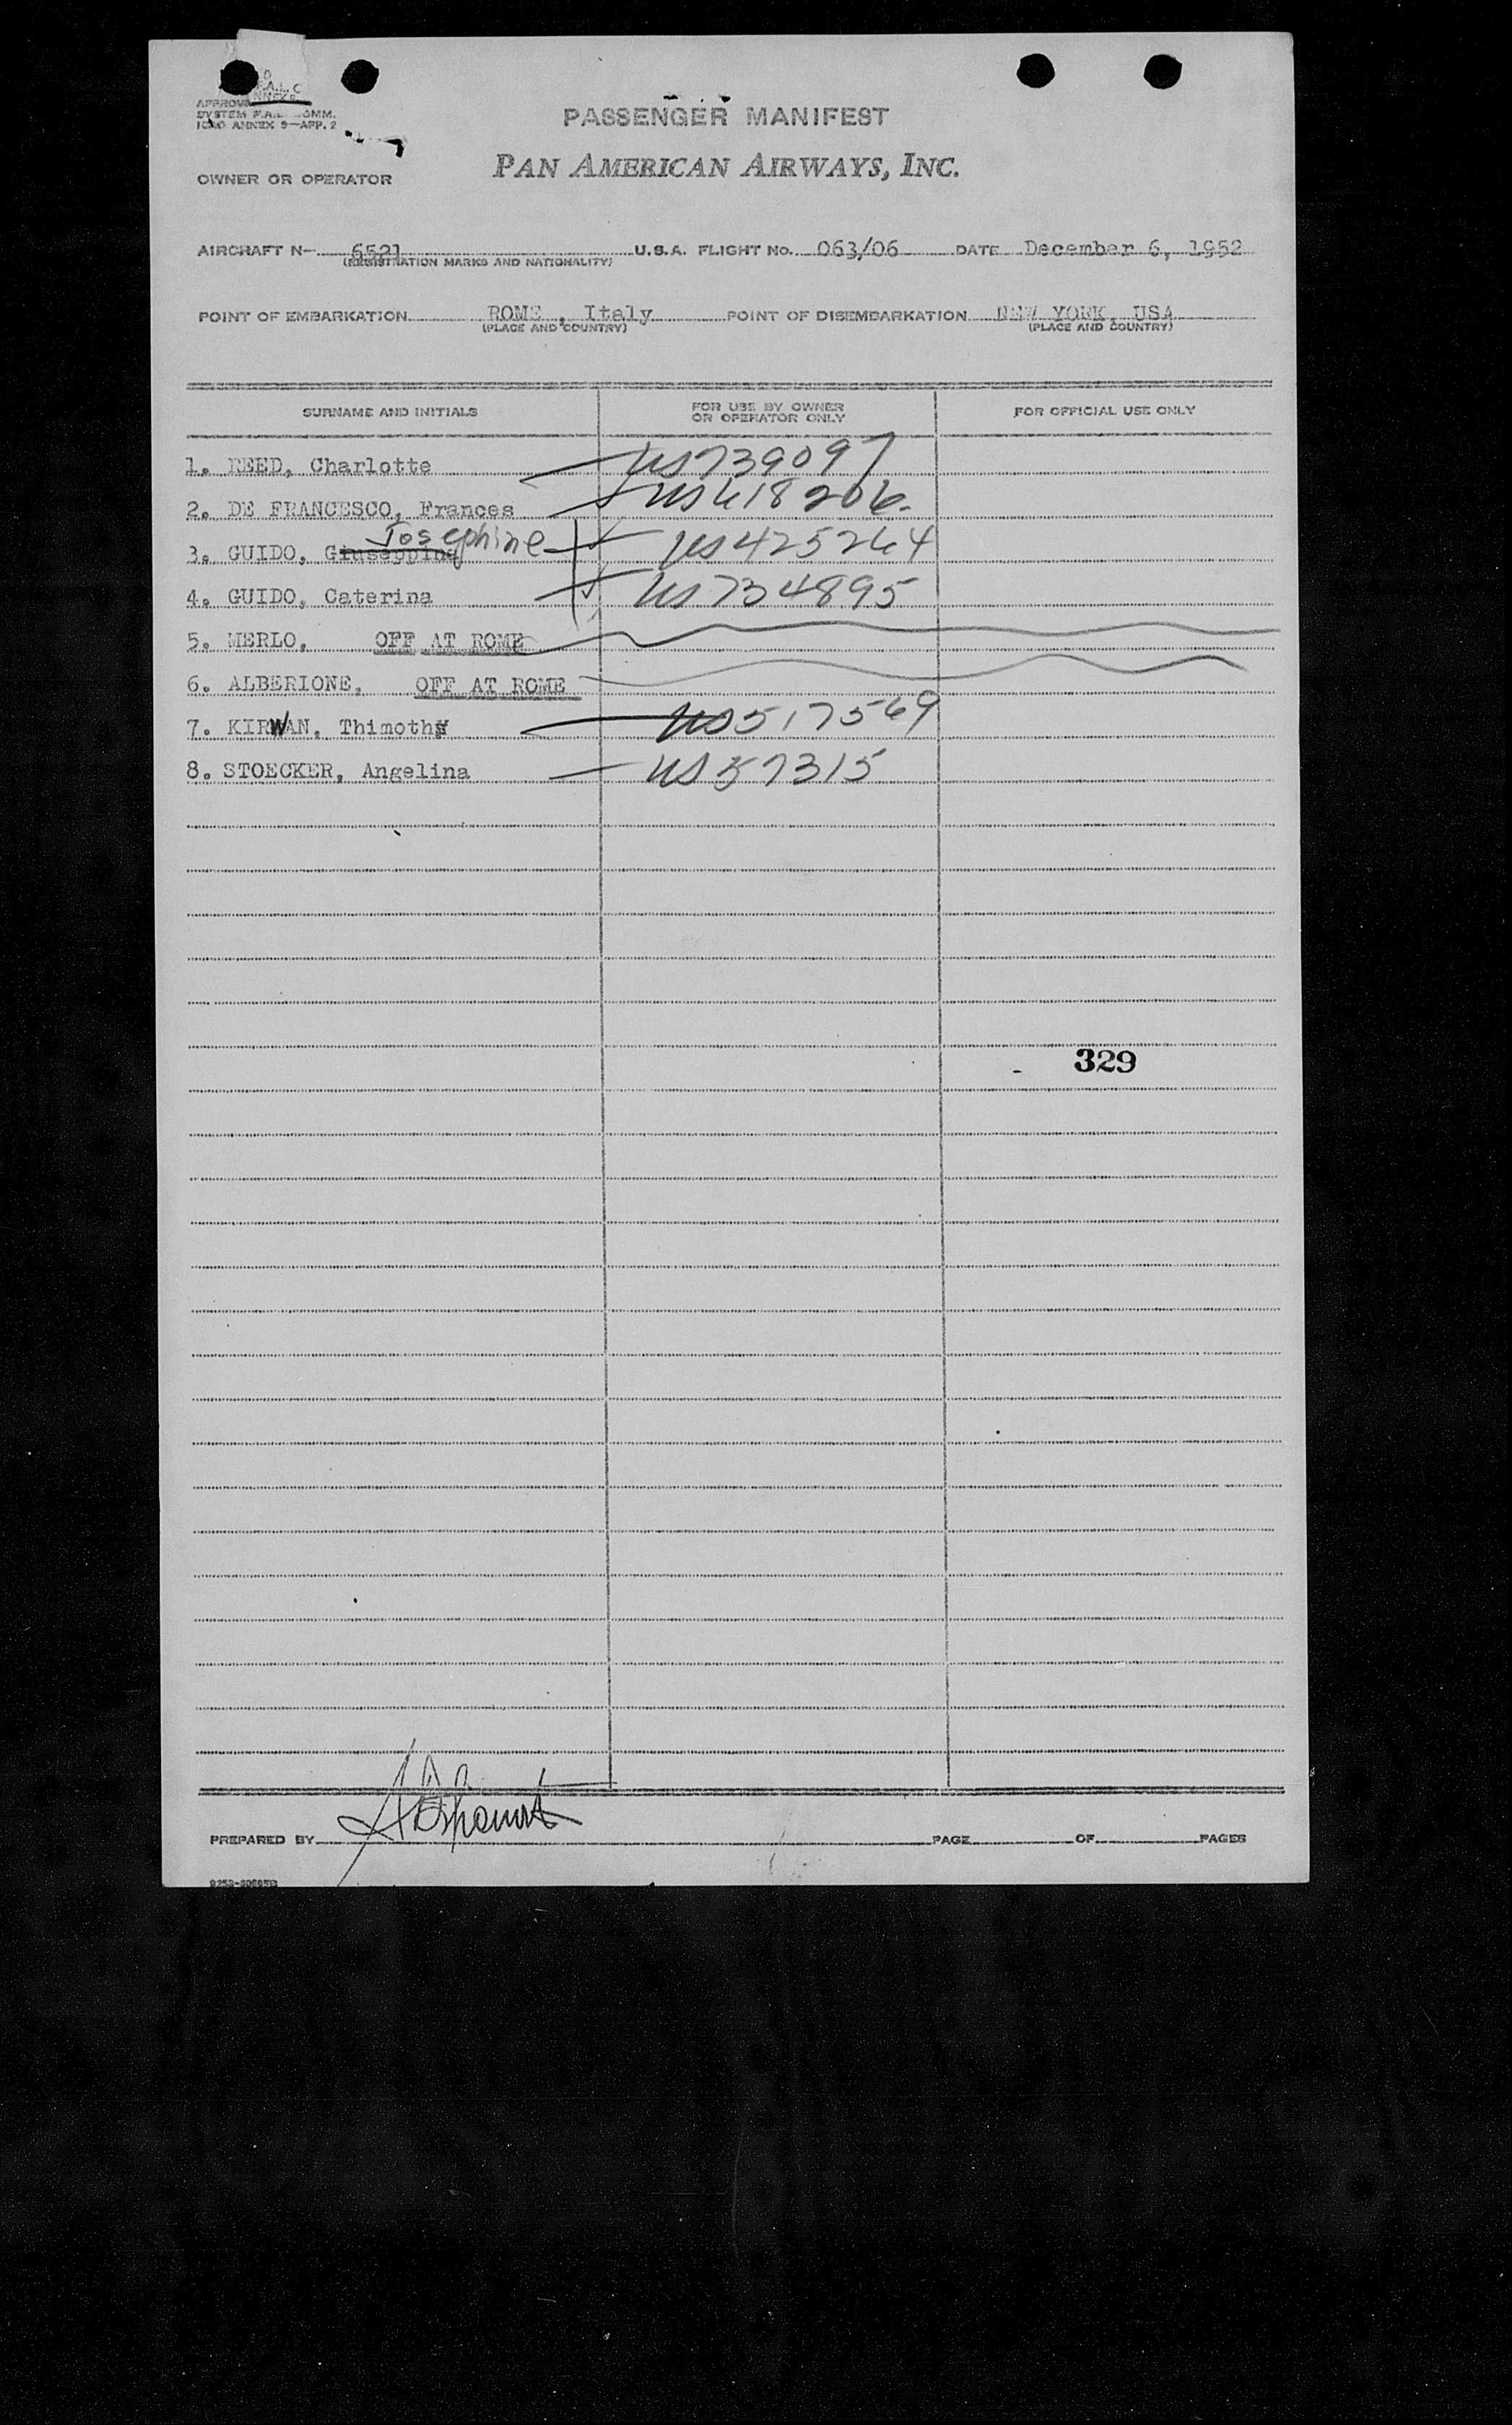 APPROVED
SYSTEM F.A.L. COMM.
ICAO ANNEX 9—APP. 2
PASSENGER MANIFEST
PAN AMERICAN AIRWAYS, INC.
OWNER OR OPERATOR
AIRCRAFT N— 6521 U.S.A. FLIGHT No. 063/06 DATE December 6, 1952
(REGISTRATION MARKS AND NATIONALITY)
POINT OF EMBARKATION ROME , Italy POINT OF DISEMBARKATION NEW YORK, USA
(PLACE AND COUNTRY) (PLACE AND COUNTRY)
SURNAME AND INITIALS FOR USE BY OWNER OR OPERATOR ONLY FOR OFFICIAL USE ONLY
1. REED, Charlotte US739097
2. DE FRANCESCO, Frances US618206.
Josephine
3. GUIDO, Giuseppina US425264
4. GUIDO, Caterina US734895
5. MERLO, OFF AT ROME
6. ALBERIONE, OFF AT ROME
7. KIRWAN, Thimothy US517569
8. STOECKER, Angelina US57315
329
PREPARED BY PAGE OF PAGES